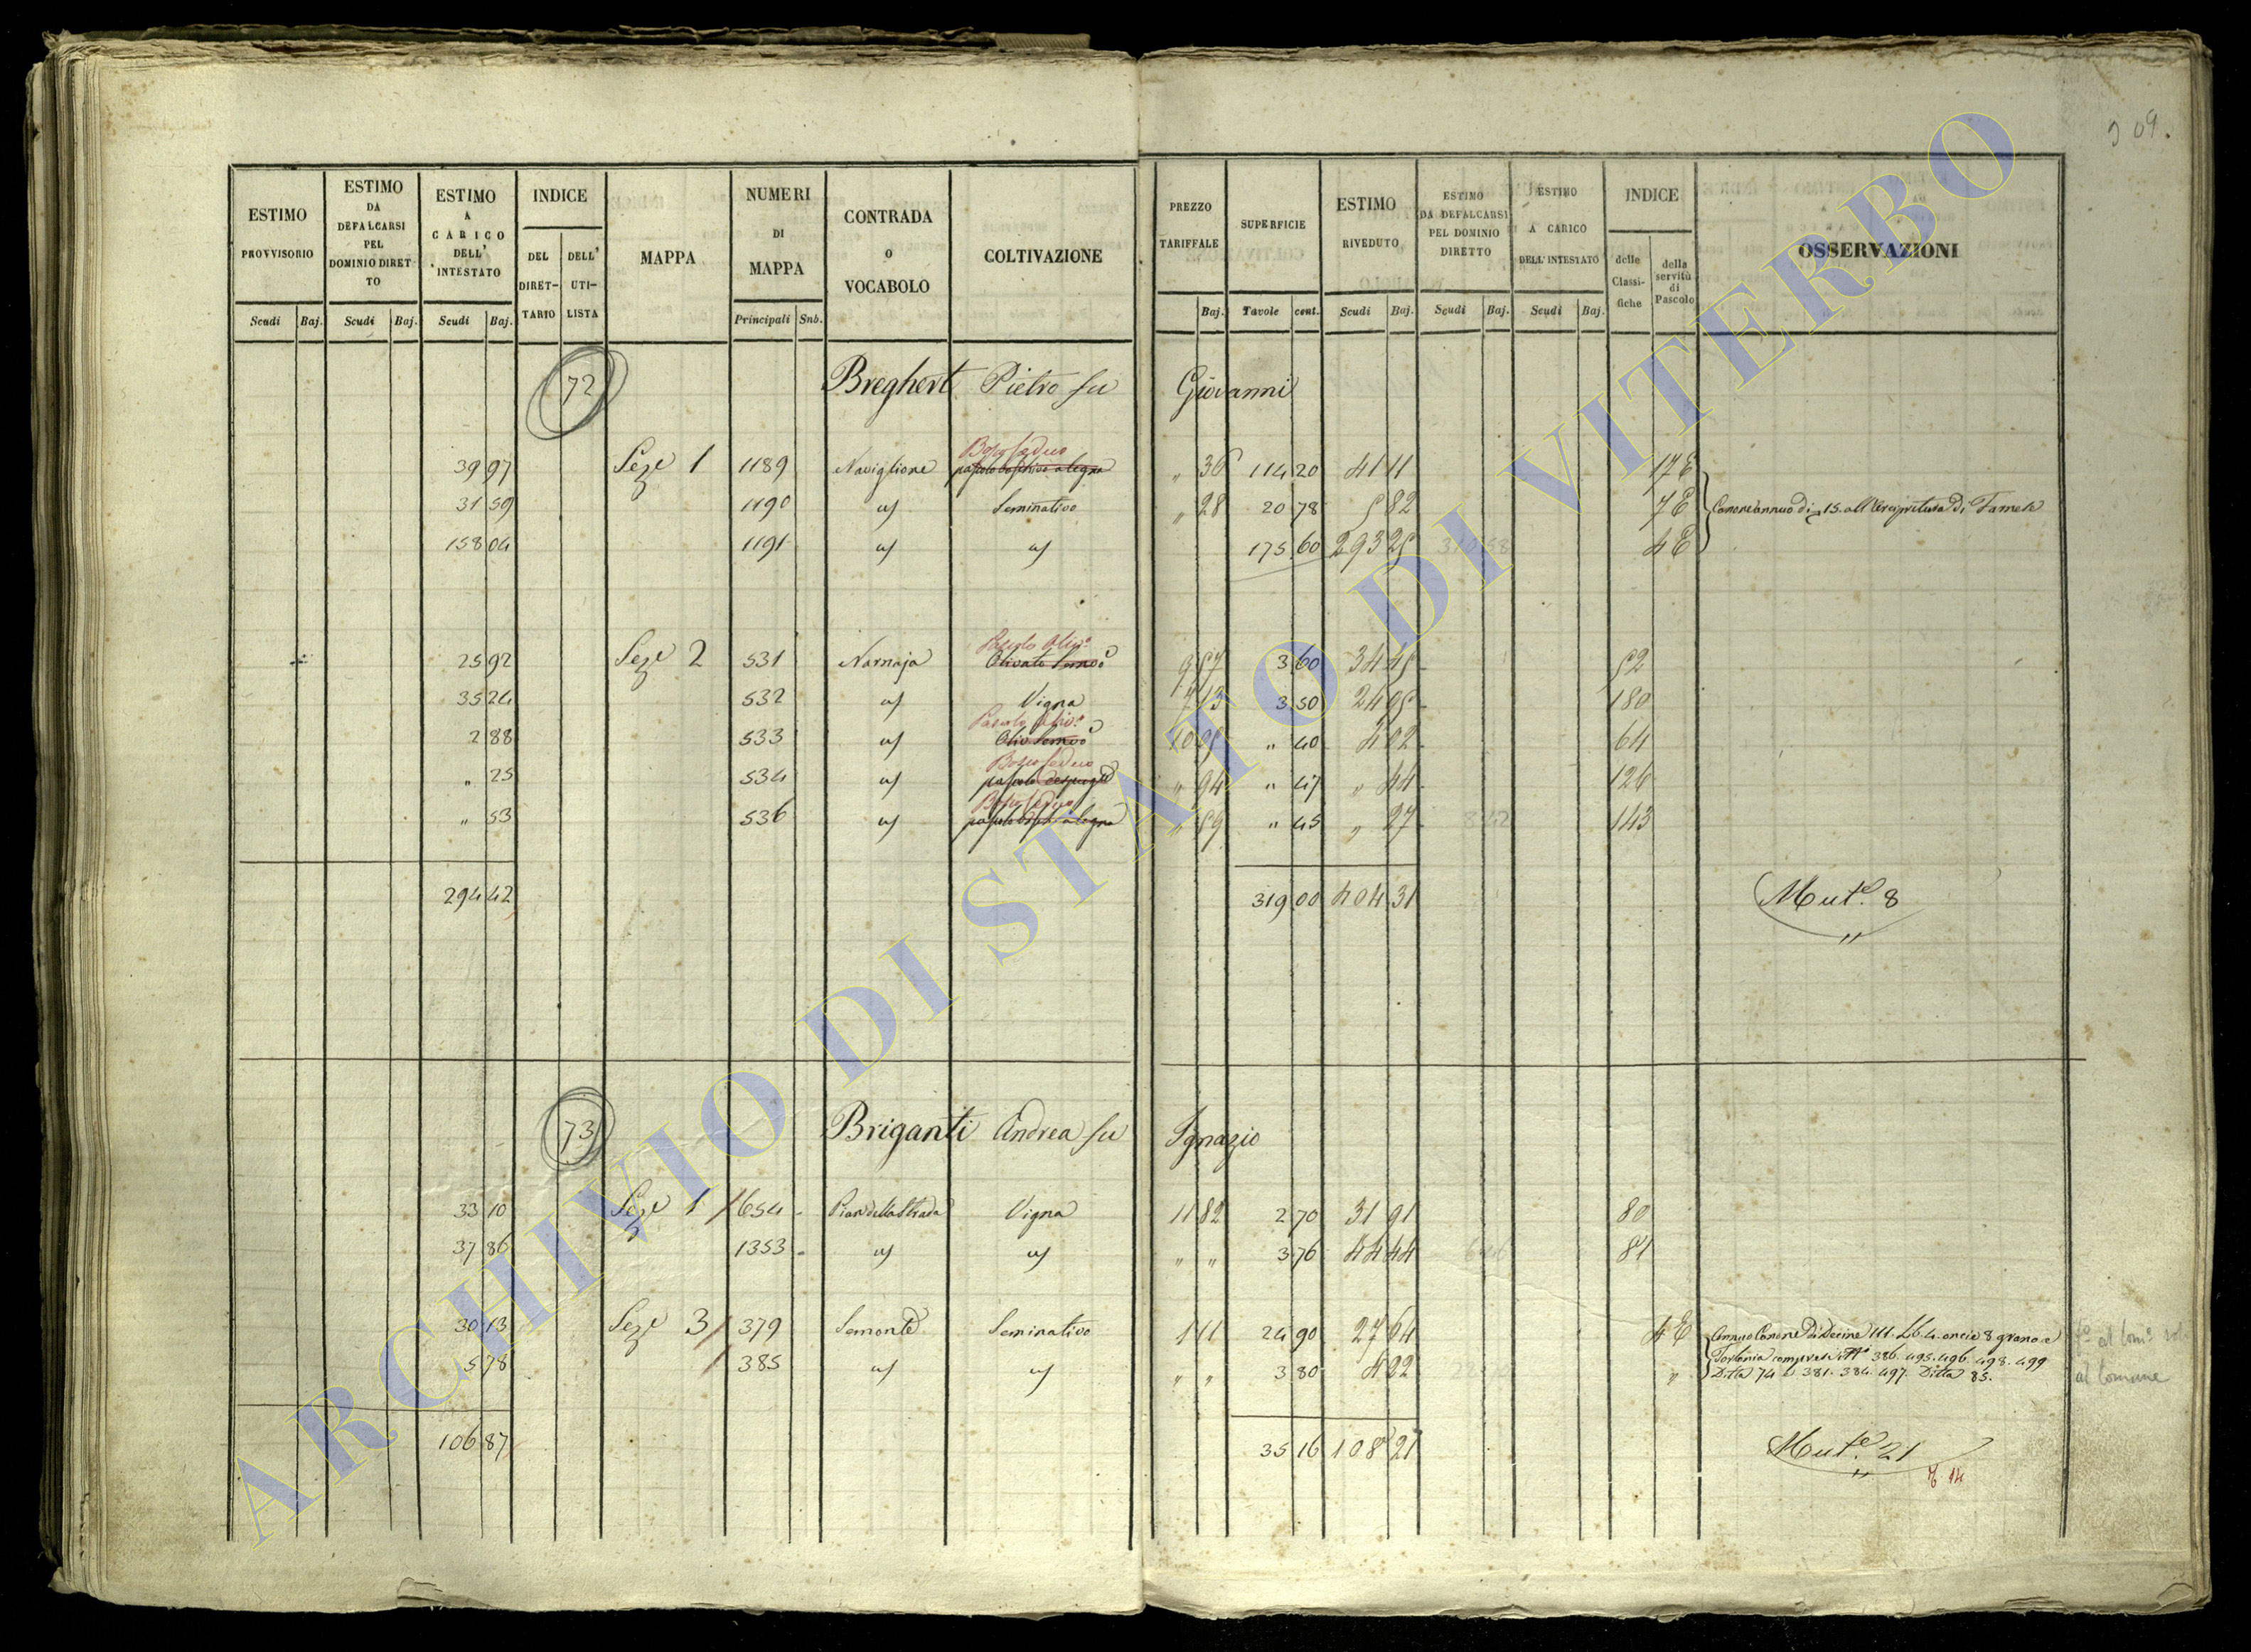 309.
ESTIMO PROVVISORIO | ESTIMO DA DEFALCARSI PEL DOMINIO DIRETTO | ESTIMO A CARICO DELL' INTESTATO | INDICE DEL DIRETTARIO | DELL' UTILISTA | MAPPA | NUMERI DI MAPPA | CONTRADA O VOCABOLO | COLTIVAZIONE | PREZZO TARIFFALE | SUPERFICIE | ESTIMO RIVEDUTO | ESTIMO DA DEFALCARSI PEL DOMINIO DIRETTO | ESTIMO A CARICO DELL' INTESTATO | INDICE delle Classifiche | della servitù di Pascolo | OSSERVAZIONI
Scudi | Baj. | Scudi | Baj. | Scudi | Baj. | Principali | Sub. | Baj. | Tavole | cent. | Scudi | Baj. | Scudi | Baj. | Scudi | Baj.
72 Breghert Pietro fu Giovanni
Bosco Ceduo
39 97 Seze 1 1189 Naviglione pascolo boschivo a legna " 36 114 20 41 11 17 E
31 59 1190 a/ Seminativo " 28 20 78 5 82 7 E Canone annuo di 15. all'Arcipretura di
158 04 1191 a/ a/ 175 60 293 25 4 E
Pascolo Oliv.o
25 92 Seze 2 531 Narnaja Olivato Semvo 9 57 3 60 34 45 52
35 24 532 a/ Vigna 7 13 3 50 24 95 180
Pascolo Oliv.o
2 88 533 a/ Oliv Semvo 10 05 " 40 4 02 64
Bosco Ceduo
" 25 534 a/ pascolo cespugto " 94 " 47 " 44 126
Bosco Ceduo
" 53 536 a/ pascolo bosco a legna " 59 " 45 " 27 143
294 42 319 00 404 31 Mut.e 8
73 Briganti Andrea fu Ignazio
33 10 Seze 1 654 Pian della Strada Vigna 11 82 2 70 31 91 80
37 86 1353 a/ a/ " " 3 76 44 44 81
30 13 Seze 3 379 Semonte Seminativo 1 11 24 90 27 64 4 E Annuo Canone di Decine 111. Lb. 4. oncie 8 grano e
5 78 385 a/ a/ " " 3 80 4 22 " 386. 495. 496. 498. 499
Ditta 74 e 381. 384. 497. Ditta 85.
al Comune
106 87 35 16 108 21 Mut.e 21
ARCHIVIO DI STATO DI VITERBO